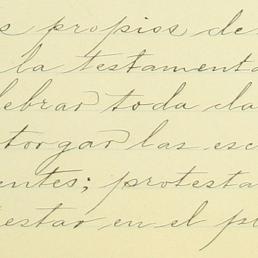 s propios de
la testamenta
lebrar toda cla
torgar las esc
entes; protesta
estar en el p